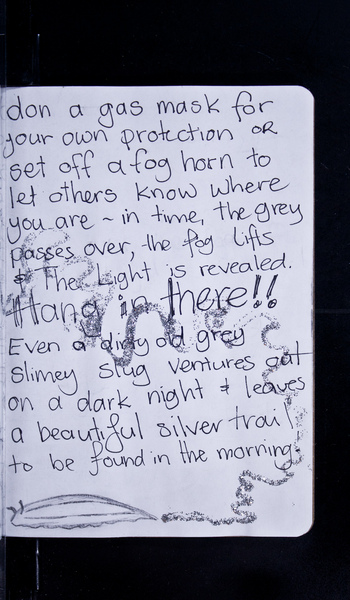 don a gas mask for
your own protection OR
set off a fog horn to
let others know where
you are ~ in time, the grey
passes over, the fog lifts
& The Light is revealed.
Hang in there!!
Even a dirty old grey
slimey slug ventures out
on a dark night & leaves
a beautiful silver trail
to be found in the morning.